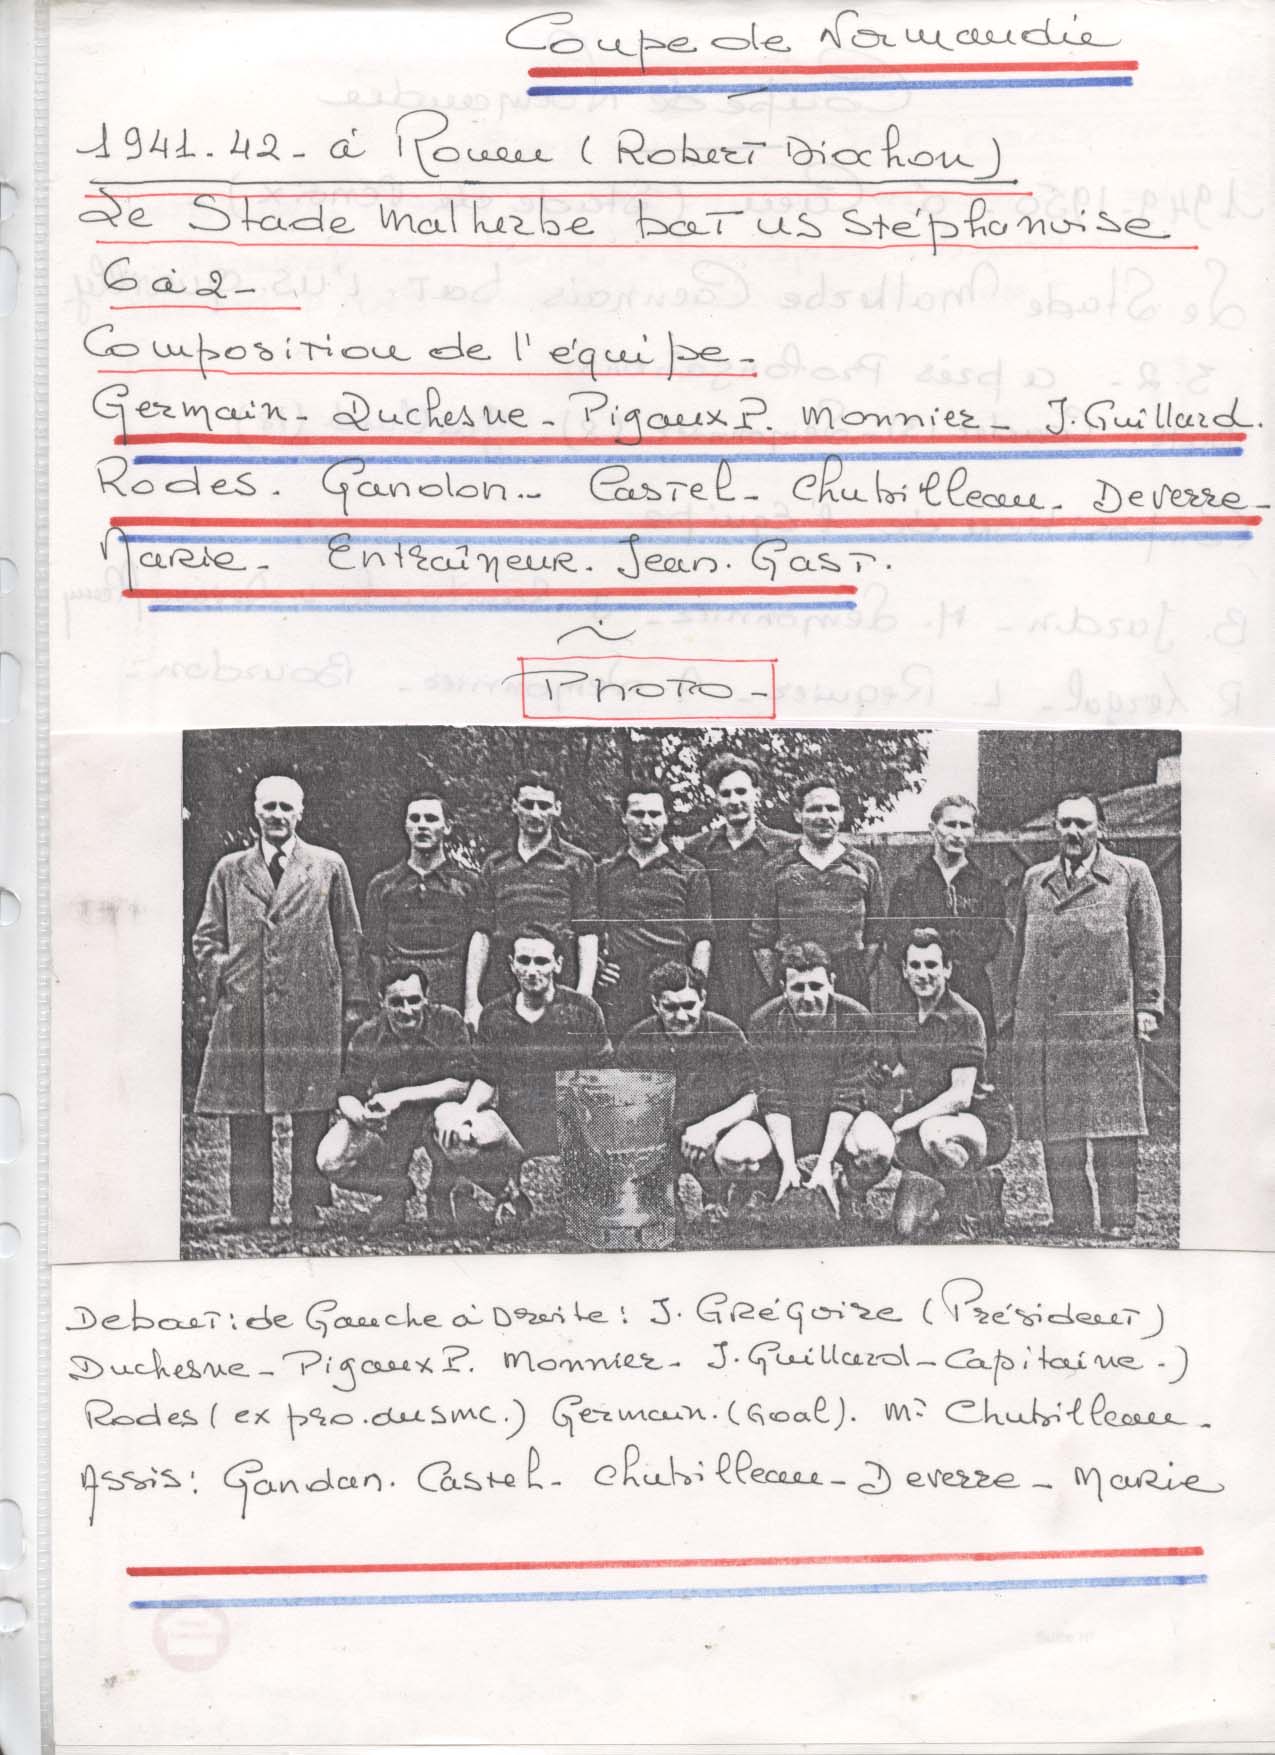 Coupe de Normandie
1941.42 - à Rouen (Robert Diochon)
Le Stade Malherbe bat US Stéphanoise
6 à 2 -
Composition de l'équipe -
Germain - Duchesne - Pigaux P. Monnier - J. Guillard.
Rodes. Gandon - Castel - Chubilleau - Deverre -
Marie - Entraîneur. Jean. Gast.
PHOTO -
Debout : de Gauche à Droite : J. Grégoire (Président)
Duchesne - Pigaux P. Monnier - J. Guillard - Capitaine -)
Rodes (ex pro. du SMC.) Germain. (Goal). Mr Chubilleau -
Assis : Gandan. Castel - Chubilleau - Deverre - Marie